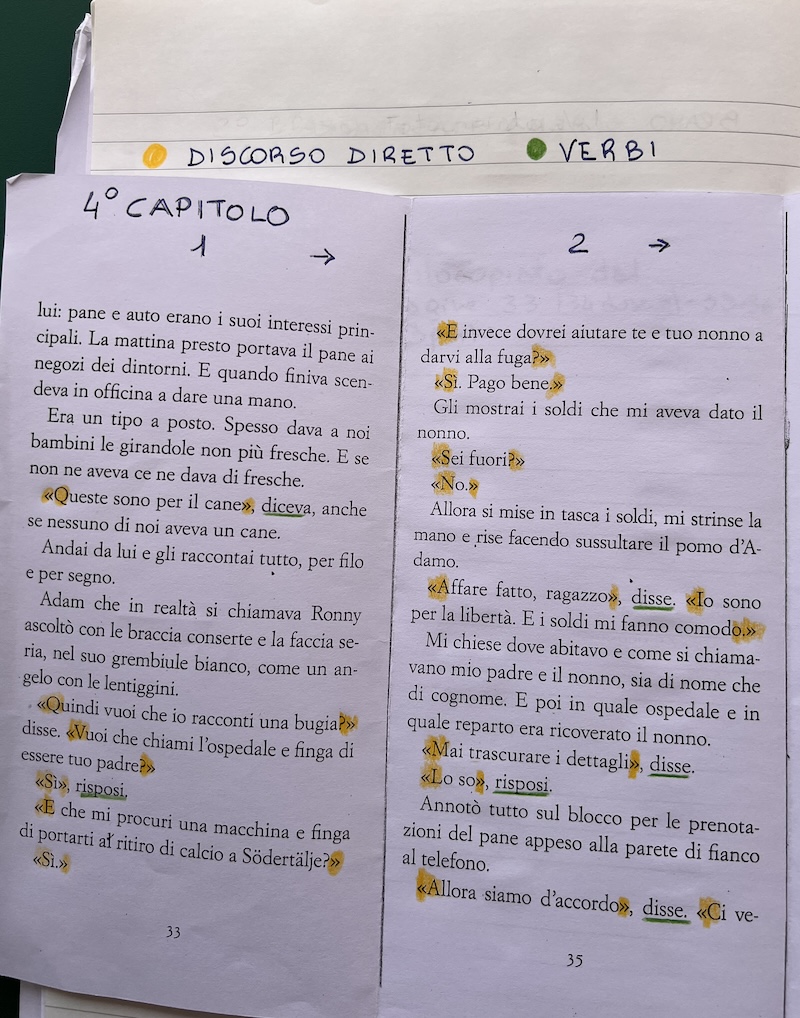 DISCORSO DIRETTO VERBI
4° CAPITOLO
1 →
lui: pane e auto erano i suoi interessi prin-
cipali. La mattina presto portava il pane ai
negozi dei dintorni. E quando finiva scen-
deva in officina a dare una mano.
Era un tipo a posto. Spesso dava a noi
bambini le girandole non più fresche. E se
non ne aveva ce ne dava di fresche.
«Queste sono per il cane», diceva, anche
se nessuno di noi aveva un cane.
Andai da lui e gli raccontai tutto, per filo
e per segno.
Adam che in realtà si chiamava Ronny
ascoltò con le braccia conserte e la faccia se-
ria, nel suo grembiule bianco, come un an-
gelo con le lentiggini.
«Quindi vuoi che io racconti una bugia?»
disse. «Vuoi che chiami l'ospedale e finga di
essere tuo padre?»
«Sì», risposi.
«E che mi procuri una macchina e finga
di portarti al ritiro di calcio a Södertälje?»
«Sì.»
33
2 →
«E invece dovrei aiutare te e tuo nonno a
darvi alla fuga?»
«Sì. Pago bene.»
Gli mostrai i soldi che mi aveva dato il
nonno.
«Sei fuori?»
«No.»
Allora si mise in tasca i soldi, mi strinse la
mano e rise facendo sussultare il pomo d'A-
damo.
«Affare fatto, ragazzo», disse. «Io sono
per la libertà. E i soldi mi fanno comodo.»
Mi chiese dove abitavo e come si chiama-
vano mio padre e il nonno, sia di nome che
di cognome. E poi in quale ospedale e in
quale reparto era ricoverato il nonno.
«Mai trascurare i dettagli», disse.
«Lo so», risposi.
Annotò tutto sul blocco per le prenota-
zioni del pane appeso alla parete di fianco
al telefono.
«Allora siamo d'accordo», disse. «Ci ve-
35